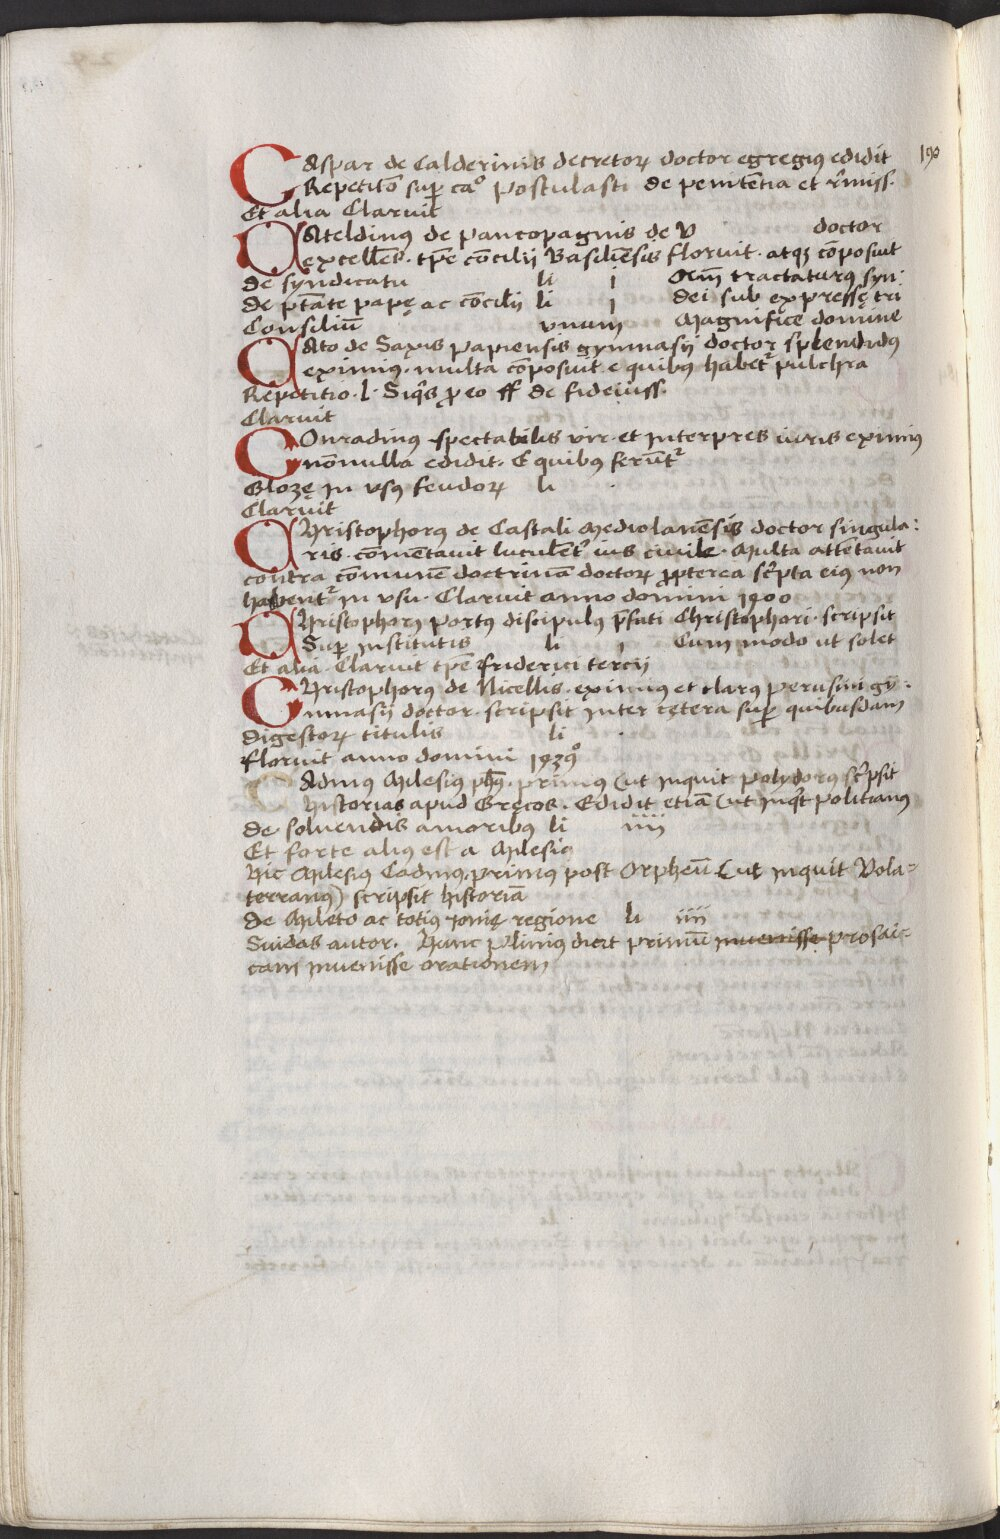 190
CAspar de Calderinis decretoꝝ doctor egregiꝰ edidit
Repetitō̄ suꝑ ca° Postulasti de penitentia et r̄miss.
Et alia Claruit
CAteldinus de pancopagnis de V doctor
excellēs. tꝑe cōcilij Basiliēsis floruit. atqꝫ cōposuit
de syndicatu li i Oēm tractaturꝰ syn:
de ptāte papę ac cōcilij li i dei sub expressę tri
Consiliū vnum Magnifice domine
CAto de Saxis papiensis gymnasij doctor splendidꝰ
eximiꝰ. multa cōposuit e quibꝰ habetʳ pulchra
Repetitio. l. Siqͥs ꝓ eo ff de fideiuss.
Claruit
COnradinꝰ spectabilis vir. et interpres iuris eximiꝰ
nōnulla edidit. E quibꝰ ferūtʳ
Glozę in vsꝰ feudoꝝ li .
Claruit
CHristophorꝰ de Castali Mediolanēsis doctor singula:
ris. cōmētauit luculētʳ ius ciuile. Multa attētauit
contra cōmunē doctrinā doctoꝝ ꝓpterea scͥpta eiꝰ non
habentʳ in vsu. Claruit anno domini 1400
CHristophorꝰ portꝰ discipulꝰ p̄fati Christophori. scripsit
Suꝑ institutis li i Cum modo ut solet
Et alia. Claruit tꝑe friderici tercij
CHristophorꝰ de Nicellis. eximiꝰ et clarꝰ perusini gy:
mnasij doctor. scripsit inter cętera suꝑ quibusdam
digestoꝝ titulis li .
floruit anno domini 1439°
CAdmꝰ Milesiꝰ phꝰ. primꝰ (ut inquit polydorꝰ scͥpsit
historias apud Gręcos. Edidit etiā (ut inqͥt politianꝰ
de soluendis amoribꝰ li iiii
Et forte aliꝰ est a Milesio
Hic Milesiꝰ Cadmꝰ. primꝰ post Orpheū (ut inquit Vola-
terranꝰ) scripsit historiā
de Mileto ac totiꝰ Ionię regione li iiii
Suidas autor. Hunc Pliniꝰ dicit primū inuenisse prosai-
cam inuenisse orationem